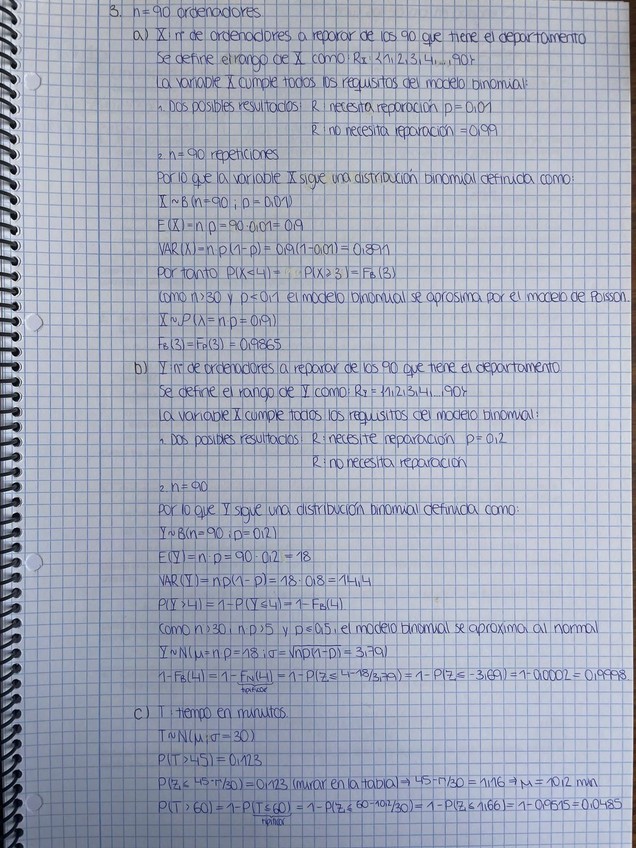 3. n=90 ordenadores
a) X: nº de ordenadores a reparar de los 90 que tiene el departamento
Se define el rango de X como: Rx: {1,2,3,4,...,90}
La variable X cumple todos los requisitos del modelo binomial:
1. Dos posibles resultados: R: necesita reparación p=0,01
R: no necesita reparación =0,99
2. n=90 repeticiones
Por lo que la variable X sigue una distribución binomial definida como:
X~B(n=90; p=0,01)
E(X)=n·p=90·0,01=0,9
VAR(X)=n·p(1-p)=0,9(1-0,01)=0,891
Por tanto P(X<4)= P(X≥3)=FB(3)
Como n>30 y p<0,1 el modelo binomial se aprosima por el modelo de Poisson.
X~P(λ=np=0,9)
FB(3)=FP(3)=0,9865
b) Y: nº de ordenadores a reparar de los 90 que tiene el departamento
Se define el rango de Y como: RY={1,2,3,4,...,90}
La variable X cumple todos los requisitos del modelo binomial:
1. Dos posibles resultados: R: necesite reparación p=0,2
R: no necesita reparación
2. n=90
Por lo que Y sigue una distribución binomial definida como:
Y~B(n=90; p=0,2)
E(Y)=n·p=90·0,2=18
VAR(Y)=np(1-p)=18·0,8=14,4
P(Y>4)=1-P(Y≤4)=1-FB(4)
Como n>30, np>5 y p≤0,5, el modelo binomial se aproxima al normal
Y~N(μ=np=18; σ=√np(1-p)=3,79)
1-FB(4)=1-FN(4)=1-P(Z≤4-18/3,79)=1-P(Z≤-3,69)=1-0,0002=0,9998
tipificar
c) T: tiempo en minutos
T~N(μ; σ=30)
P(T>45)=0,123
P(Z≤45-π/30)=0,123 (mirar en la tabla)→45-π/30=1,16→μ=10,2 min
P(T>60)=1-P(T≤60)=1-P(Z≤60-10,2/30)=1-P(Z≤1,66)=1-0,9515=0,0485
tipificar